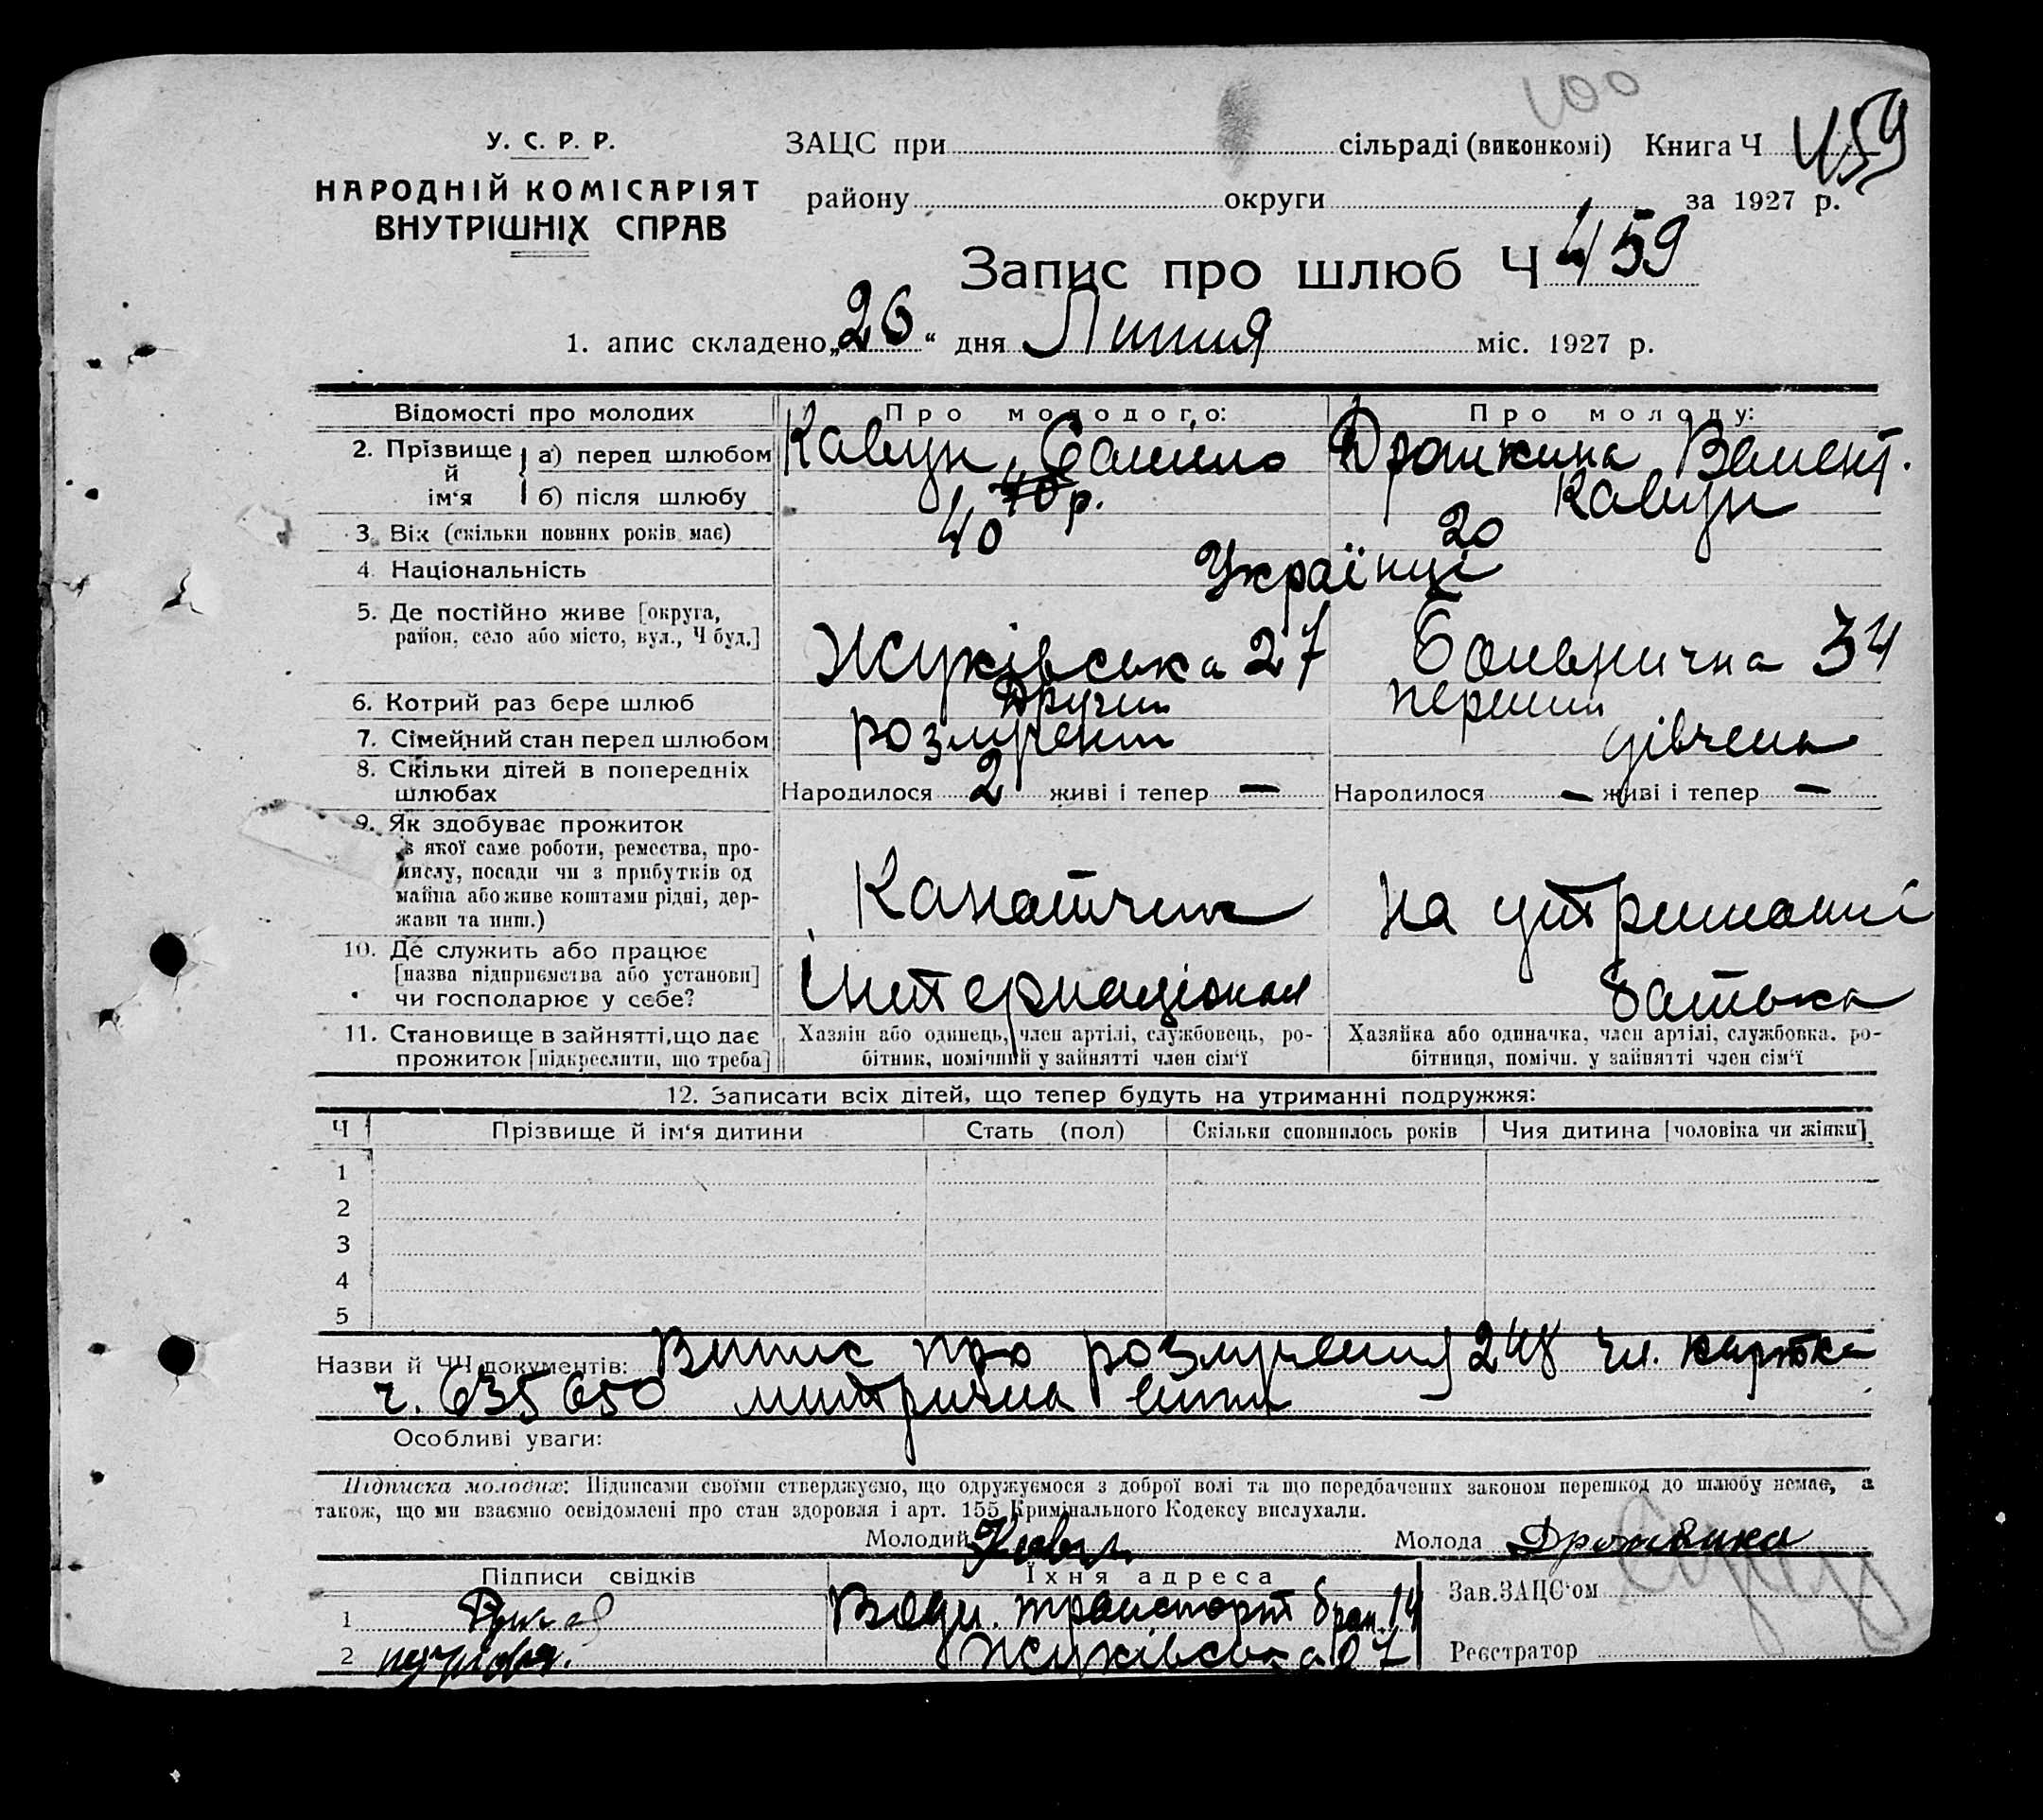 100
У. С. Р. Р.
НАРОДНІЙ КОМІСАРІЯТ
ВНУТРІШНІХ СПРАВ
ЗАЦС при сільраді (виконкомі) Книга Ч 459
району округи за 1927 р.
Запис про шлюб Ч 459
1. апис складено „26“ дня Липня міс. 1927 р.
Відомості про молодих Про молодого: Про молоду:
2. Прізвище й ім‘я а) перед шлюбом Кавун Дрошкина Валент.
б) після шлюбу 40 р. Кавун
3. Вік (скільки повних років має) 40 20
4. Національність Українці
5. Де постійно живе [округа,
район, село або місто, вул., Ч буд.] Жуківська 27 Больнична 34
6. Котрий раз бере шлюб Другий перший
7. Сімейний стан перед шлюбом розлучений дівчена
8. Скільки дітей в попередніх
шлюбах Народилося 2 живі і тепер — Народилося — живі і тепер —
9. Як здобуває прожиток
з якої саме роботи, ремества, про-
мислу, посади чи з прибутків од
майна або живе коштами рідні, дер-
жави та инш.) Канатчик на утриманні
10. Де служить або працює
[назва підприємства або установи]
чи господарює у себе? Інтернаціонал батька
11. Становище в зайнятті, що дає
прожиток [підкреслити, що треба]
Хазяїн або одинець, член артілі, службовець, ро-
бітник, помічний у зайнятті член сім‘ї
Хазяйка або одиначка, член артілі, службовка, ро-
бітниця, помічн. у зайнятті член сім‘ї
12. Записати всіх дітей, що тепер будуть на утриманні подружжя:
Ч Прізвище й ім‘я дитини Стать (пол) Скільки сповнилось років Чия дитина [чоловіка чи жінки]
1
2
3
4
5
Назви й ЧЧ документів: Випис про розлучения 248 чл. картка
ч. 635650 митрична
Особливі уваги:
Підписка молодих: Підписами своїми стверджуємо, що одружуємося з доброї волі та що передбачених законом перешкод до шлюбу немає, а
також, що ми взаємно освідомлені про стан здоровля і арт. 155 Кримінального Кодексу вислухали.
Молодий Молода
Підписи свідків Їхня адреса Зав. ЗАЦС‘ом
1 Водн. транспорт 14
2 Жуківська Реєстратор